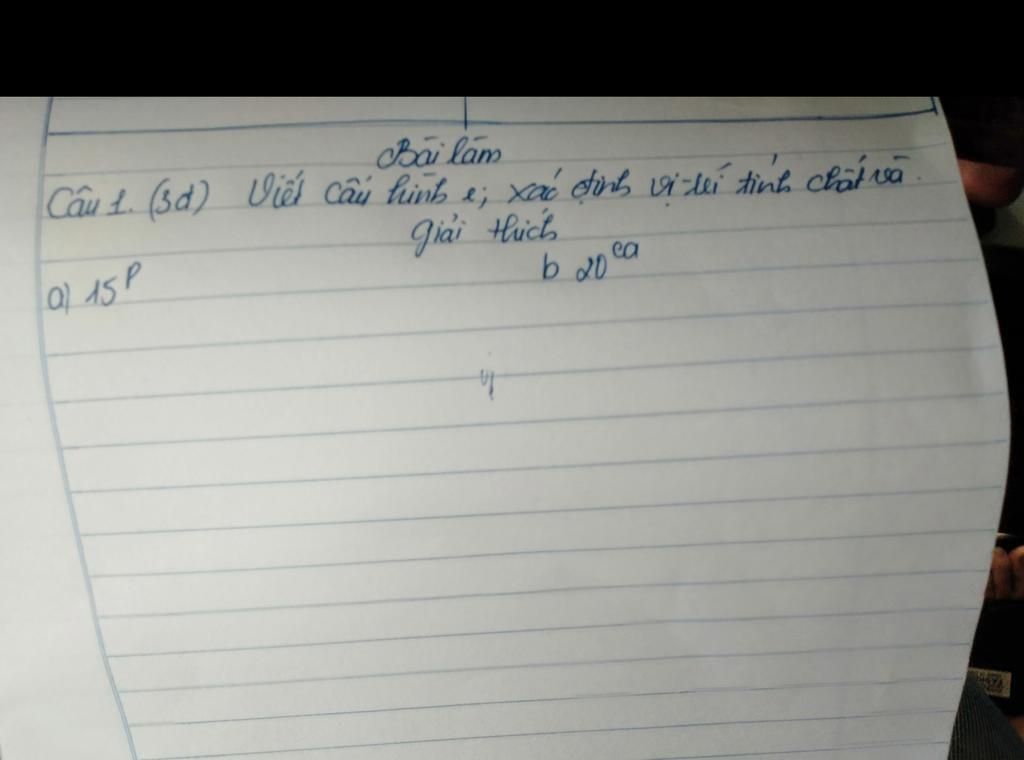 Bài làm
Câu 1. (3đ) Viết cấu hình e; xác định vị trí tính chất và
giải thích
a) 15P b 20ca